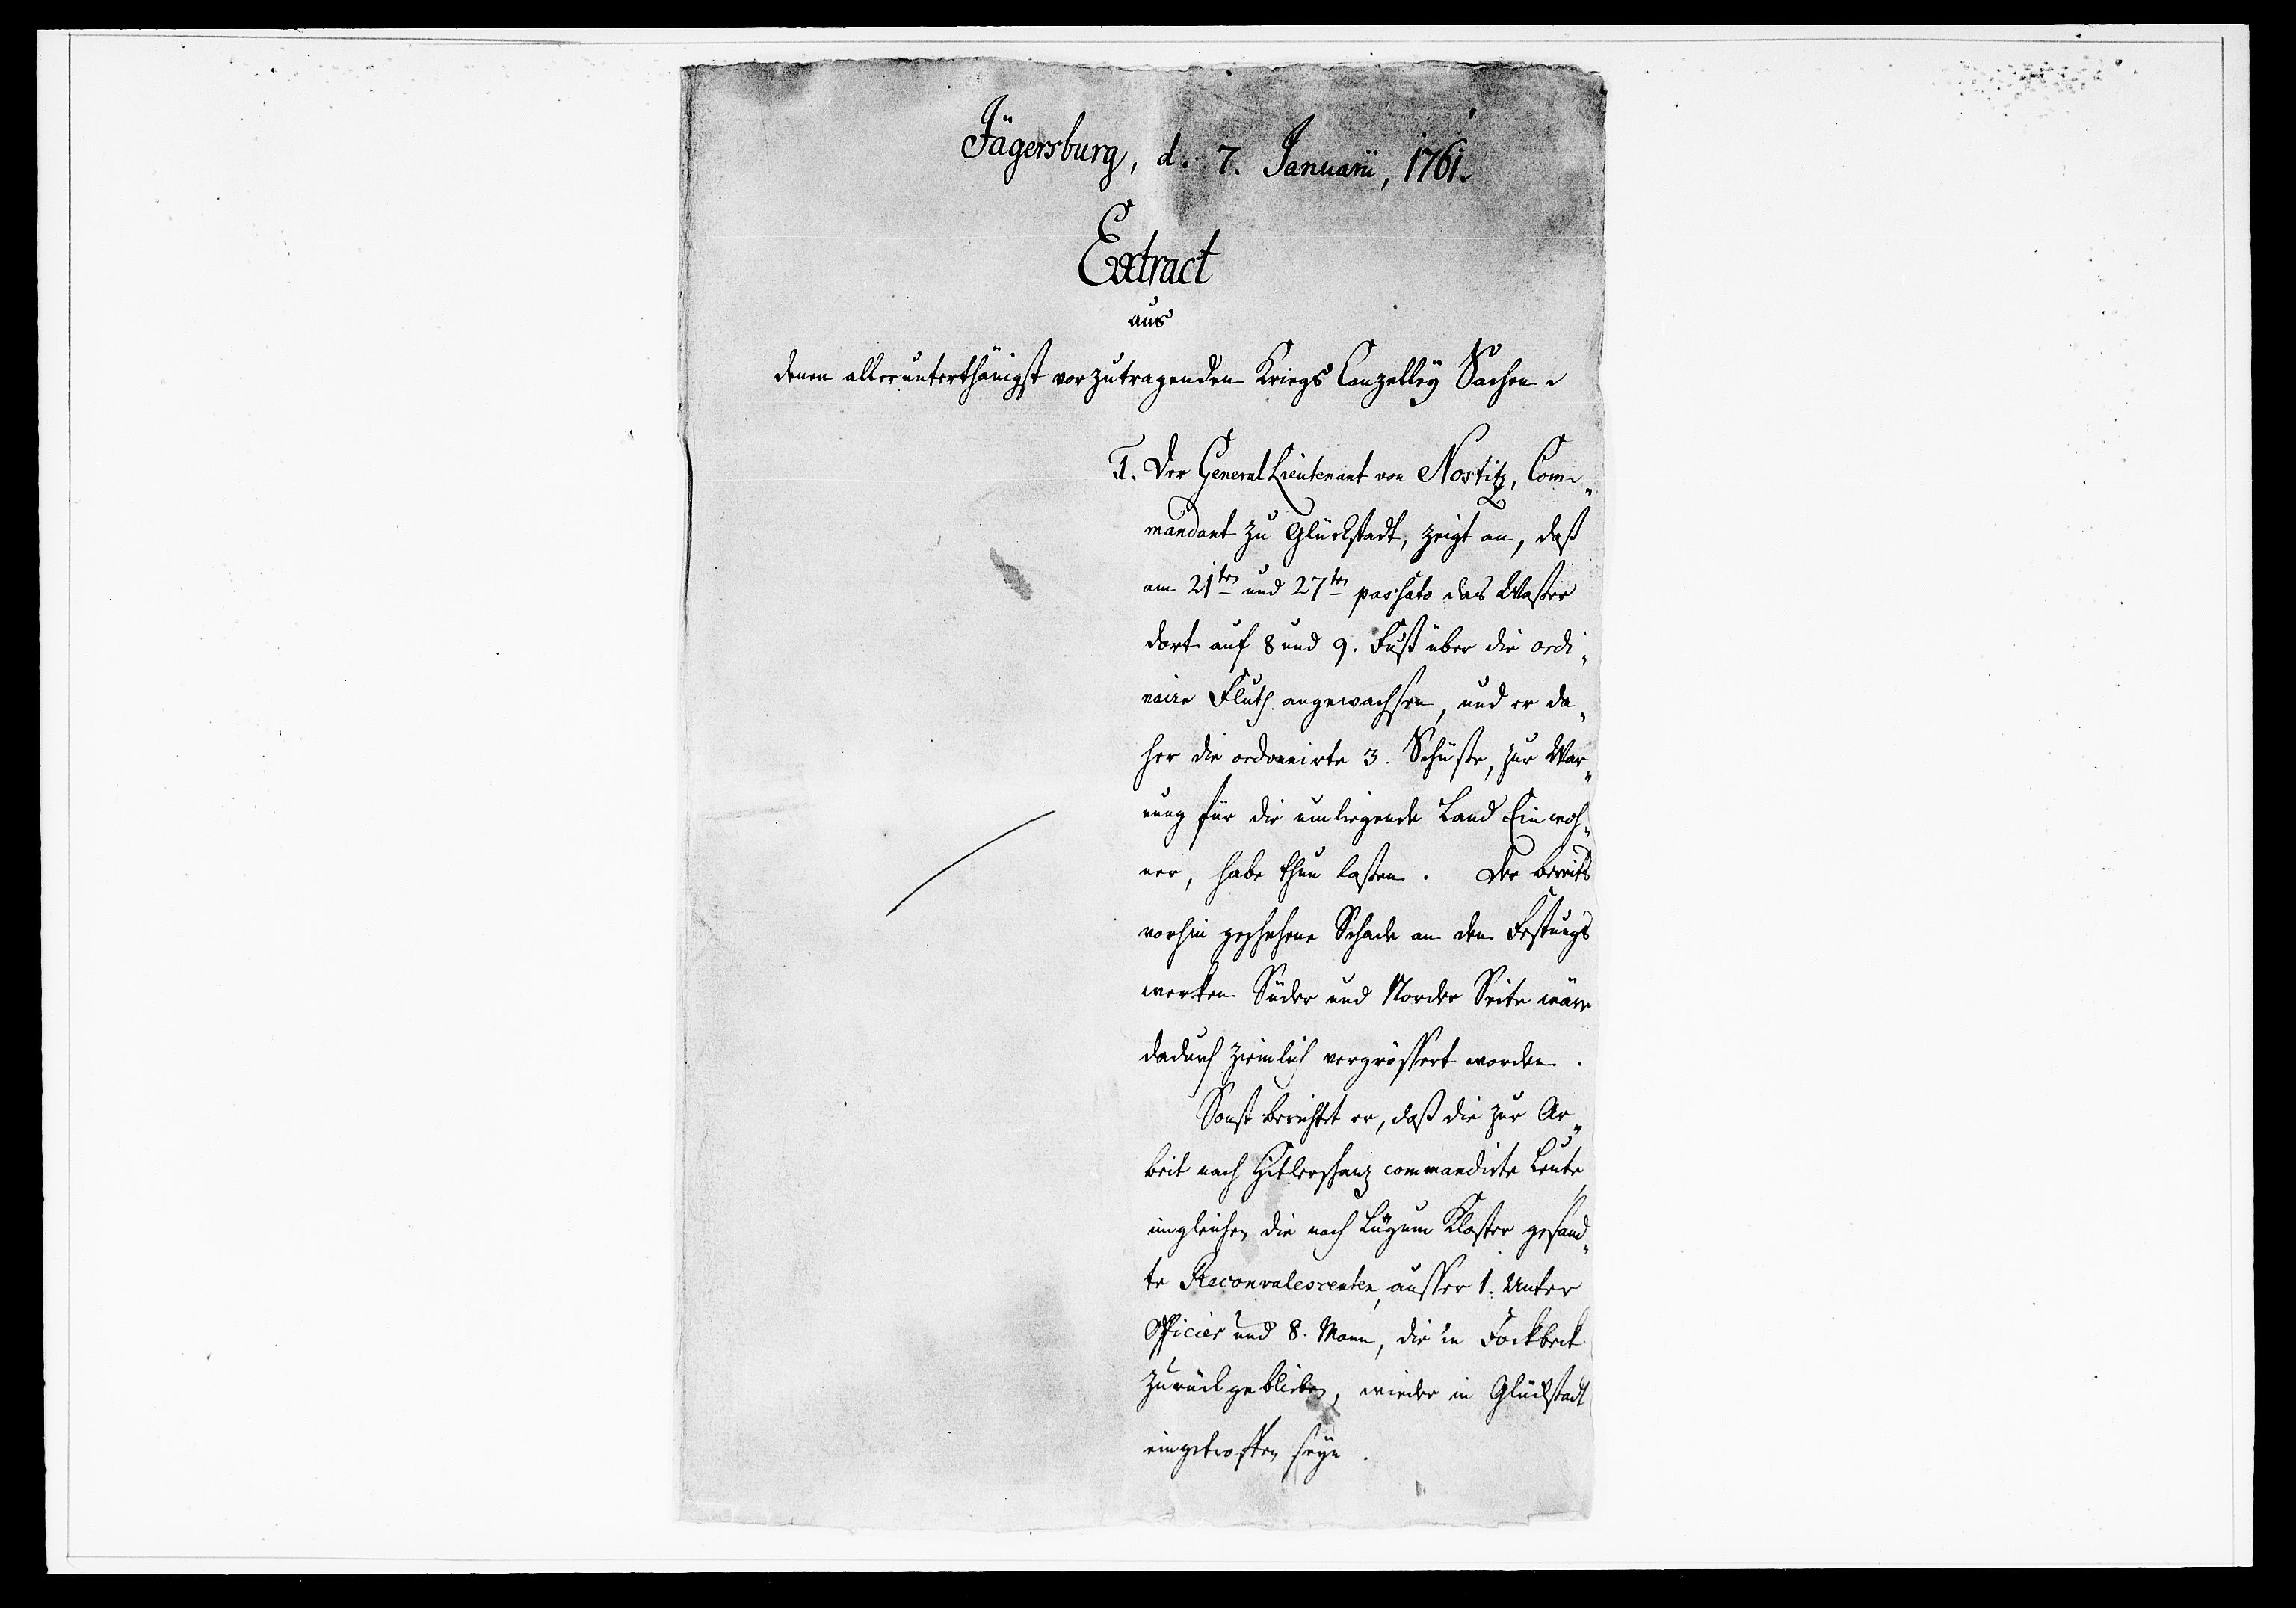 Jägersburg, d. 7. Januarii, 1761.
Extract
aus
denen allerunterthänigst vorzutragenden Kriegs Canzelley Sachen.
1. Der General Lieutenant von Nostitz, Com„
mandant zu Glückstadt, zeigt an, daß
am 21ten und 27ten passato das Waßer
dort auf 8 und 9. Fuß über die ordi„
naire Fluth angewachsen, und er da„
her die ordonnirte 3. Schüße, zur War„
nung für die umliegende Land Einwoh„
ner, habe thun laßen. Der bereits
vorhin geschehene Schade an den Festungs
werken Süder und Norder Seite wäre
dadurch ziemlich vergrössert worden.
Sonst berichtet er, daß die zur Ar„
beit nach Hitlerschanz commandirte Leute,
imgleichen die nach Lügum Kloster gesand„
te Reconvalescenten, ausser 1. Unter
Officier und 8. Mann, die in Fockbeck
zurückgeblieben, wieder in Glückstadt
eingetroffen seyn.